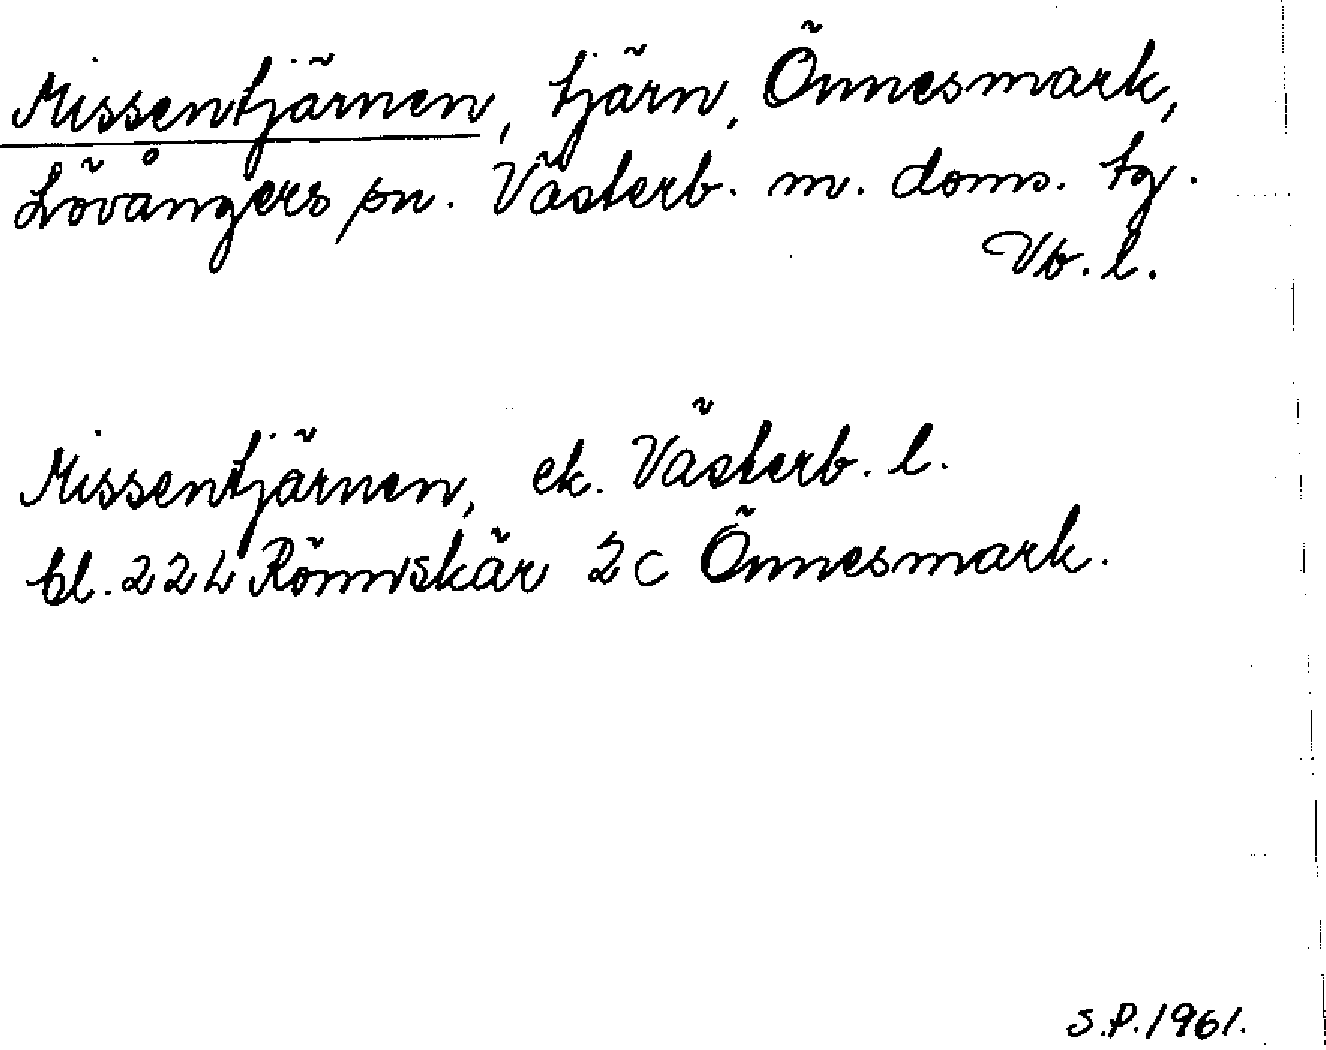 Missentjärnen, tjärn, Önnesmark,
Lövångers sn. Västerb. m. doms. tg.
Vb. l.
Missentjärnen, ek. Västerb. l.
bl. 22L Rönnskär 2c Önnesmark.
S.P. 1961.